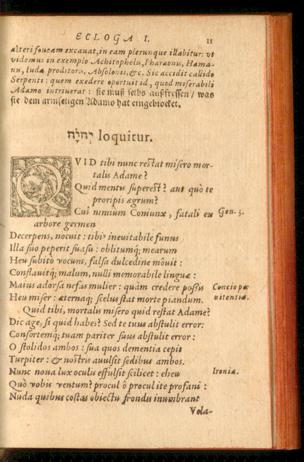 ECLOGA I. 11
alteri foueam excauat, in eam plerunque illabitur: vt
videmus in exemplo Achitophelis, Pharaonis, Hama-
nis, Iudæ proditoris, Absolonis, &c. Sic accidit callido
Serpenti: quem exedere oportuit id, quod miserabili
Adamo intriuerat: sie muß selbs außfressen / was
sie dem armseligen Adamo hat eingebrocket.
loquitur.
QVID tibi nunc restat misero mor-
talis Adame?
Quid mentis superest? aut quò te
proripis agrum?
Cui nimium Coniunx, fatali eu Gen. 3.
arbore germen
Decerpens, nocuit: tibi ineuitabile funus
Illa suo peperit suasu: oblitumq; mearum
Heu subitò vocum, falsa dulcedine mouit:
Conflauitq; malum, nulli memorabile linguæ:
Maius adorsa nefas mulier: quàm credere possis Concio pœ
Heu miser: æternaq; scelus stat morte piandum. nitentiæ.
Quid tibi, mortalis misero quid restat Adame?
Dic age, si quid habes? Sed te tuus abstulit error:
Consortemq; tuam pariter suus abstulit error:
O stolidos ambos: sua quos dementia cepit
Turpiter: & nostris auulsit sedibus ambos.
Nunc noua lux oculis effulsit scilicet: eheu Ironia.
Quò vobis ventum? procul ô procul ite profani:
Nuda quibus costas obiectu frondis inumbrant
Vola-